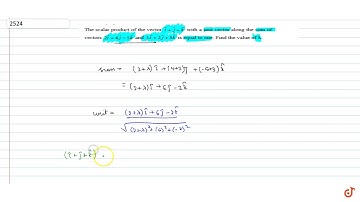 2524
The scalar product of the vector î + ĵ + k̂ with a unit vector along the sum of
vectors 2î + 4ĵ − 5k̂ and λî + 2ĵ + 3k̂ is equal to one. Find the value of λ.
sum = (2+λ)î + (4+2)ĵ + (-5+3)k̂
= (2+λ)î + 6ĵ - 2k̂
unit = (2+λ)î + 6ĵ - 2k̂
√(2+λ)² + (6)² + (-2)²
(î + ĵ + k̂) .